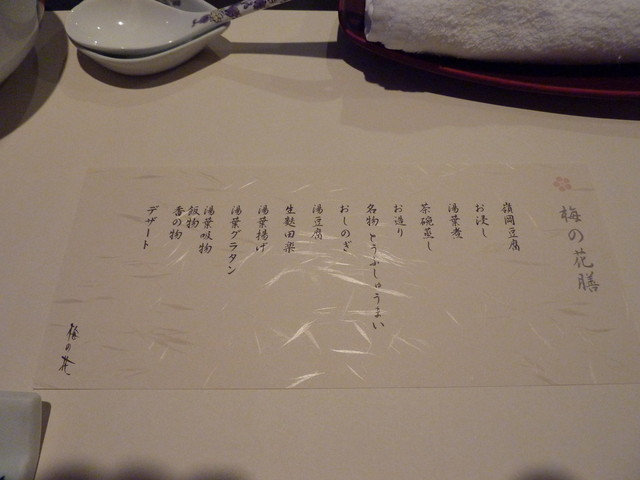 梅の花膳
嶺岡豆腐
お浸し
湯葉煮
茶碗蒸し
お造り
名物 とうふしゅうまい
おしのぎ
湯豆腐
生麩田楽
湯葉揚げ
湯葉グラタン
湯葉吸物
飯物
香の物
デザート
梅の花